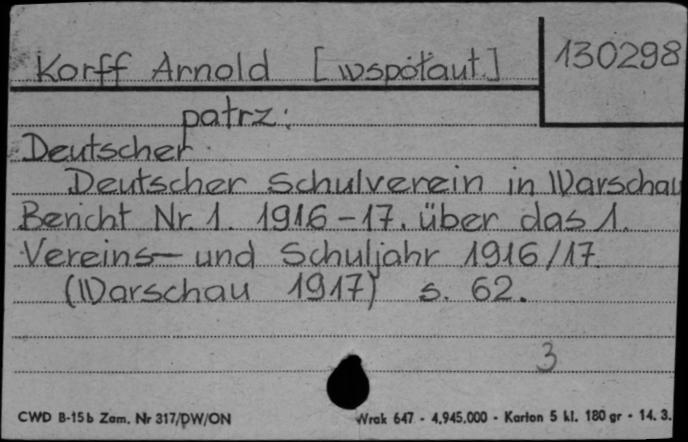 Korff Arnold [współaut.] 130298
patrz:
Deutscher
Deutscher Schulverein in Warschau
Bericht Nr. 1. 1916-17. über das 1.
Vereins- und Schuljahr 1916/17
(Warschau 1917) s. 62.
3
CWD B-15b Zam. Nr 317/DW/ON Wrak 647 - 4.945.000 - Karton 5 kl. 180 gr - 14. 3.